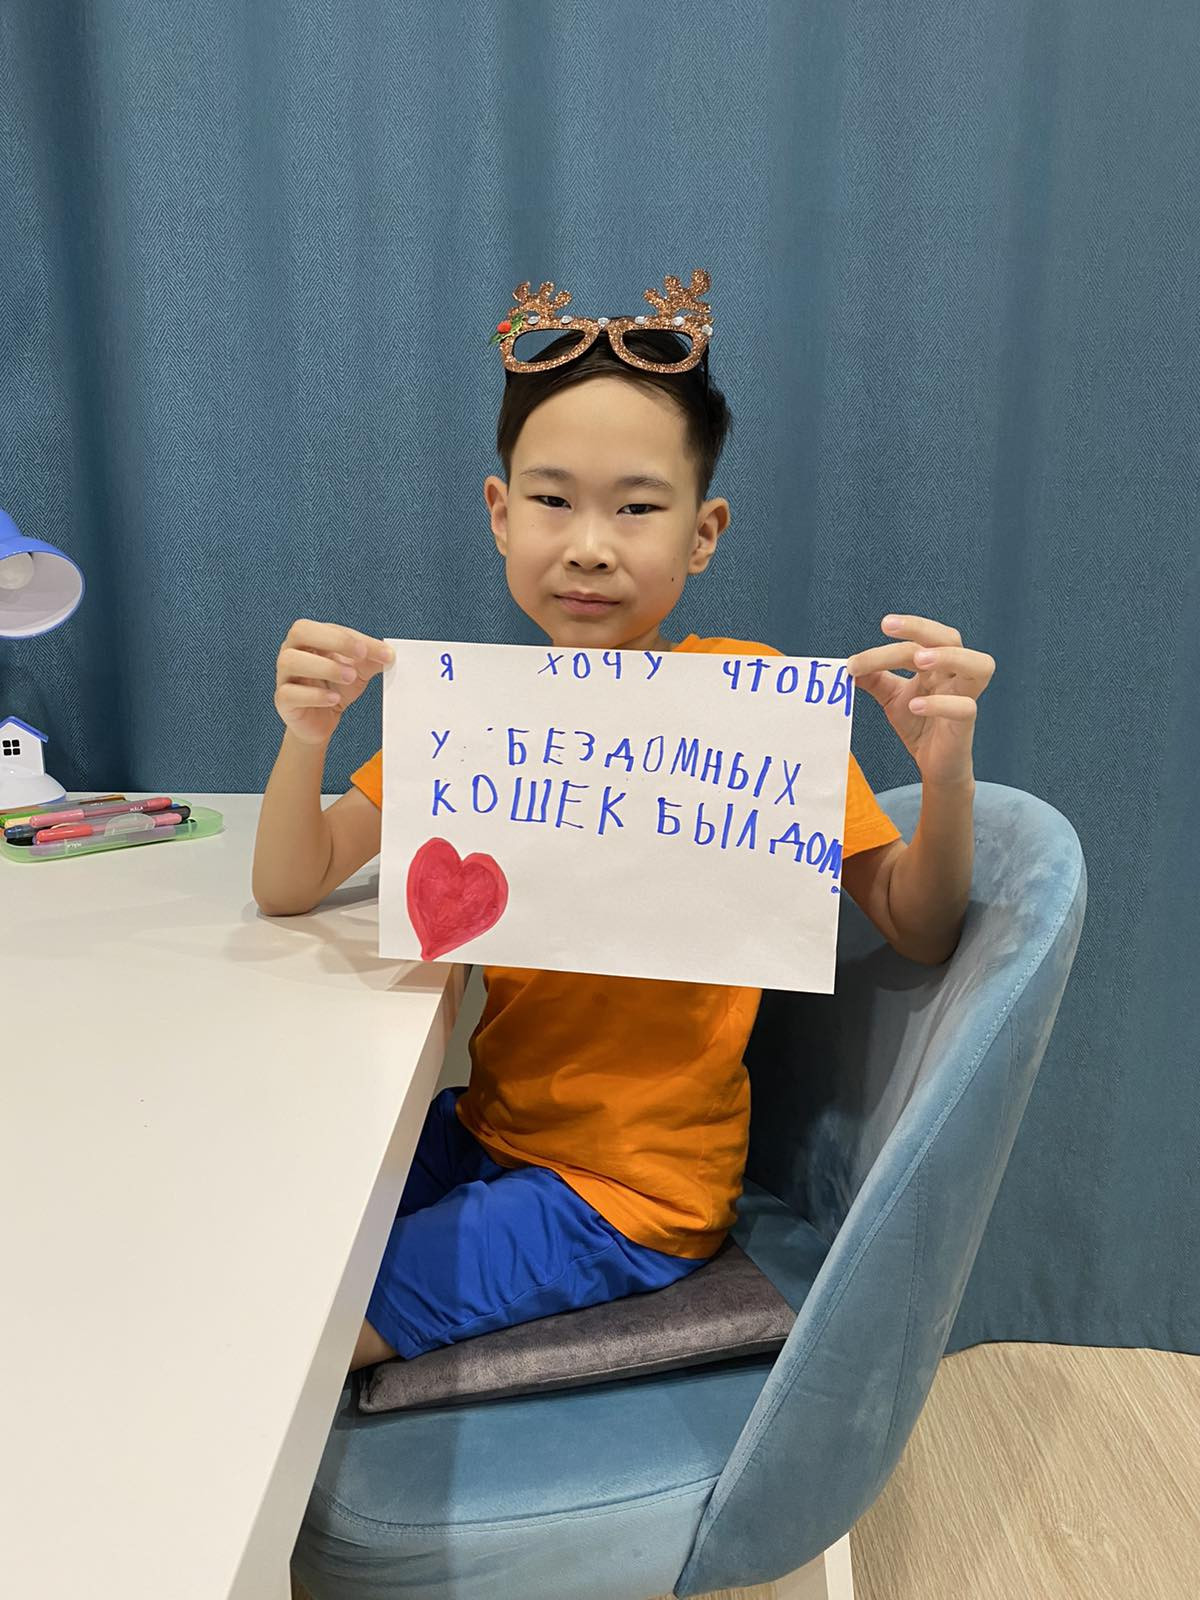 Я ХОЧУ ЧТОБЫ
У БЕЗДОМНЫХ
КОШЕК БЫЛ ДОМ!